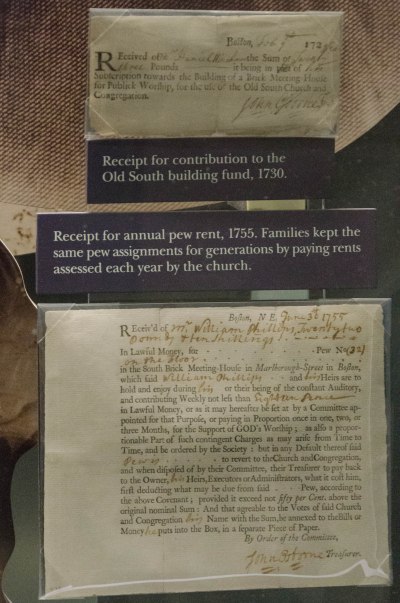 Boston, Feb 9th 172
Received of Mr Daniel the Sum of twenty
three Pounds it being in part of his
Subscription towards the Building of a Brick Meeting-House
for Publick Worship, for the use of the Old South Church and
Congregation.
Receipt for contribution to the
Old South building fund, 1730.
Receipt for annual pew rent, 1755. Families kept the
same pew assignments for generations by paying rents
assessed each year by the church.
Boston, N E. June 3d 1755
Receiv'd of Mr William Phillips Twenty two
Pounds & ten Shillings
In Lawful Money, for Pew No (32)
on the floor
in the South Brick Meeting-House in Marlborough-Street in Boston,
which said William Phillips and his Heirs are to
hold and enjoy during his or their being of the constant Auditory,
and contributing Weekly not less than Eighteen Pence
in Lawful Money, or as it may hereafter be set at by a Committee ap-
pointed for that Purpose, or paying in Proportion once in one, two, or
three Months, for the Support of GOD's Worship; as also a propor-
tionable Part of such contingent Charges as may arise from Time to
Time, and be ordered by the Society: but in any Default thereof said
Pew to revert to the Church and Congregation,
and when disposed of by their Committee, their Treasurer to pay back
to the Owner, his Heirs, Executors or Administrators, what it cost him,
first deducting what may be due from said Pew, according to
the above Covenant; provided it exceed not fifty per Cent. above the
original nominal Sum: And that agreable to the Votes of said Church
and Congregation his Name with the Sum, be annexed to the Bills or
Money he puts into the Box, in a separate Piece of Paper.
By Order of the Committee,
John Osborne Treasurer.